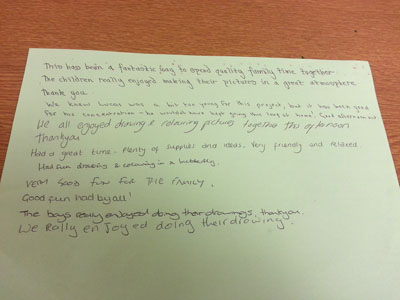 This has been a fantastic way to spend quality family time together.
The children really enjoyed making their pictures in a great atmosphere.
Thank you.
We knew Lucas was a bit too young for this project, but it has been good
for his concentration - he wouldn't have kept going this long at home! Good afternoon out
We all enjoyed drawing & colouring pictures together this afternoon
Thankyou
Had a great time - Plenty of supplies and ideas. Very friendly and relaxed.
Had fun drawing & colouring in a butterfly.
VERY GOOD FUN FOR THE FAMILY.
Good fun had by all!
The boys really enjoyed doing their drawings, thankyou.
We Rally en Joyed doing their drowing.